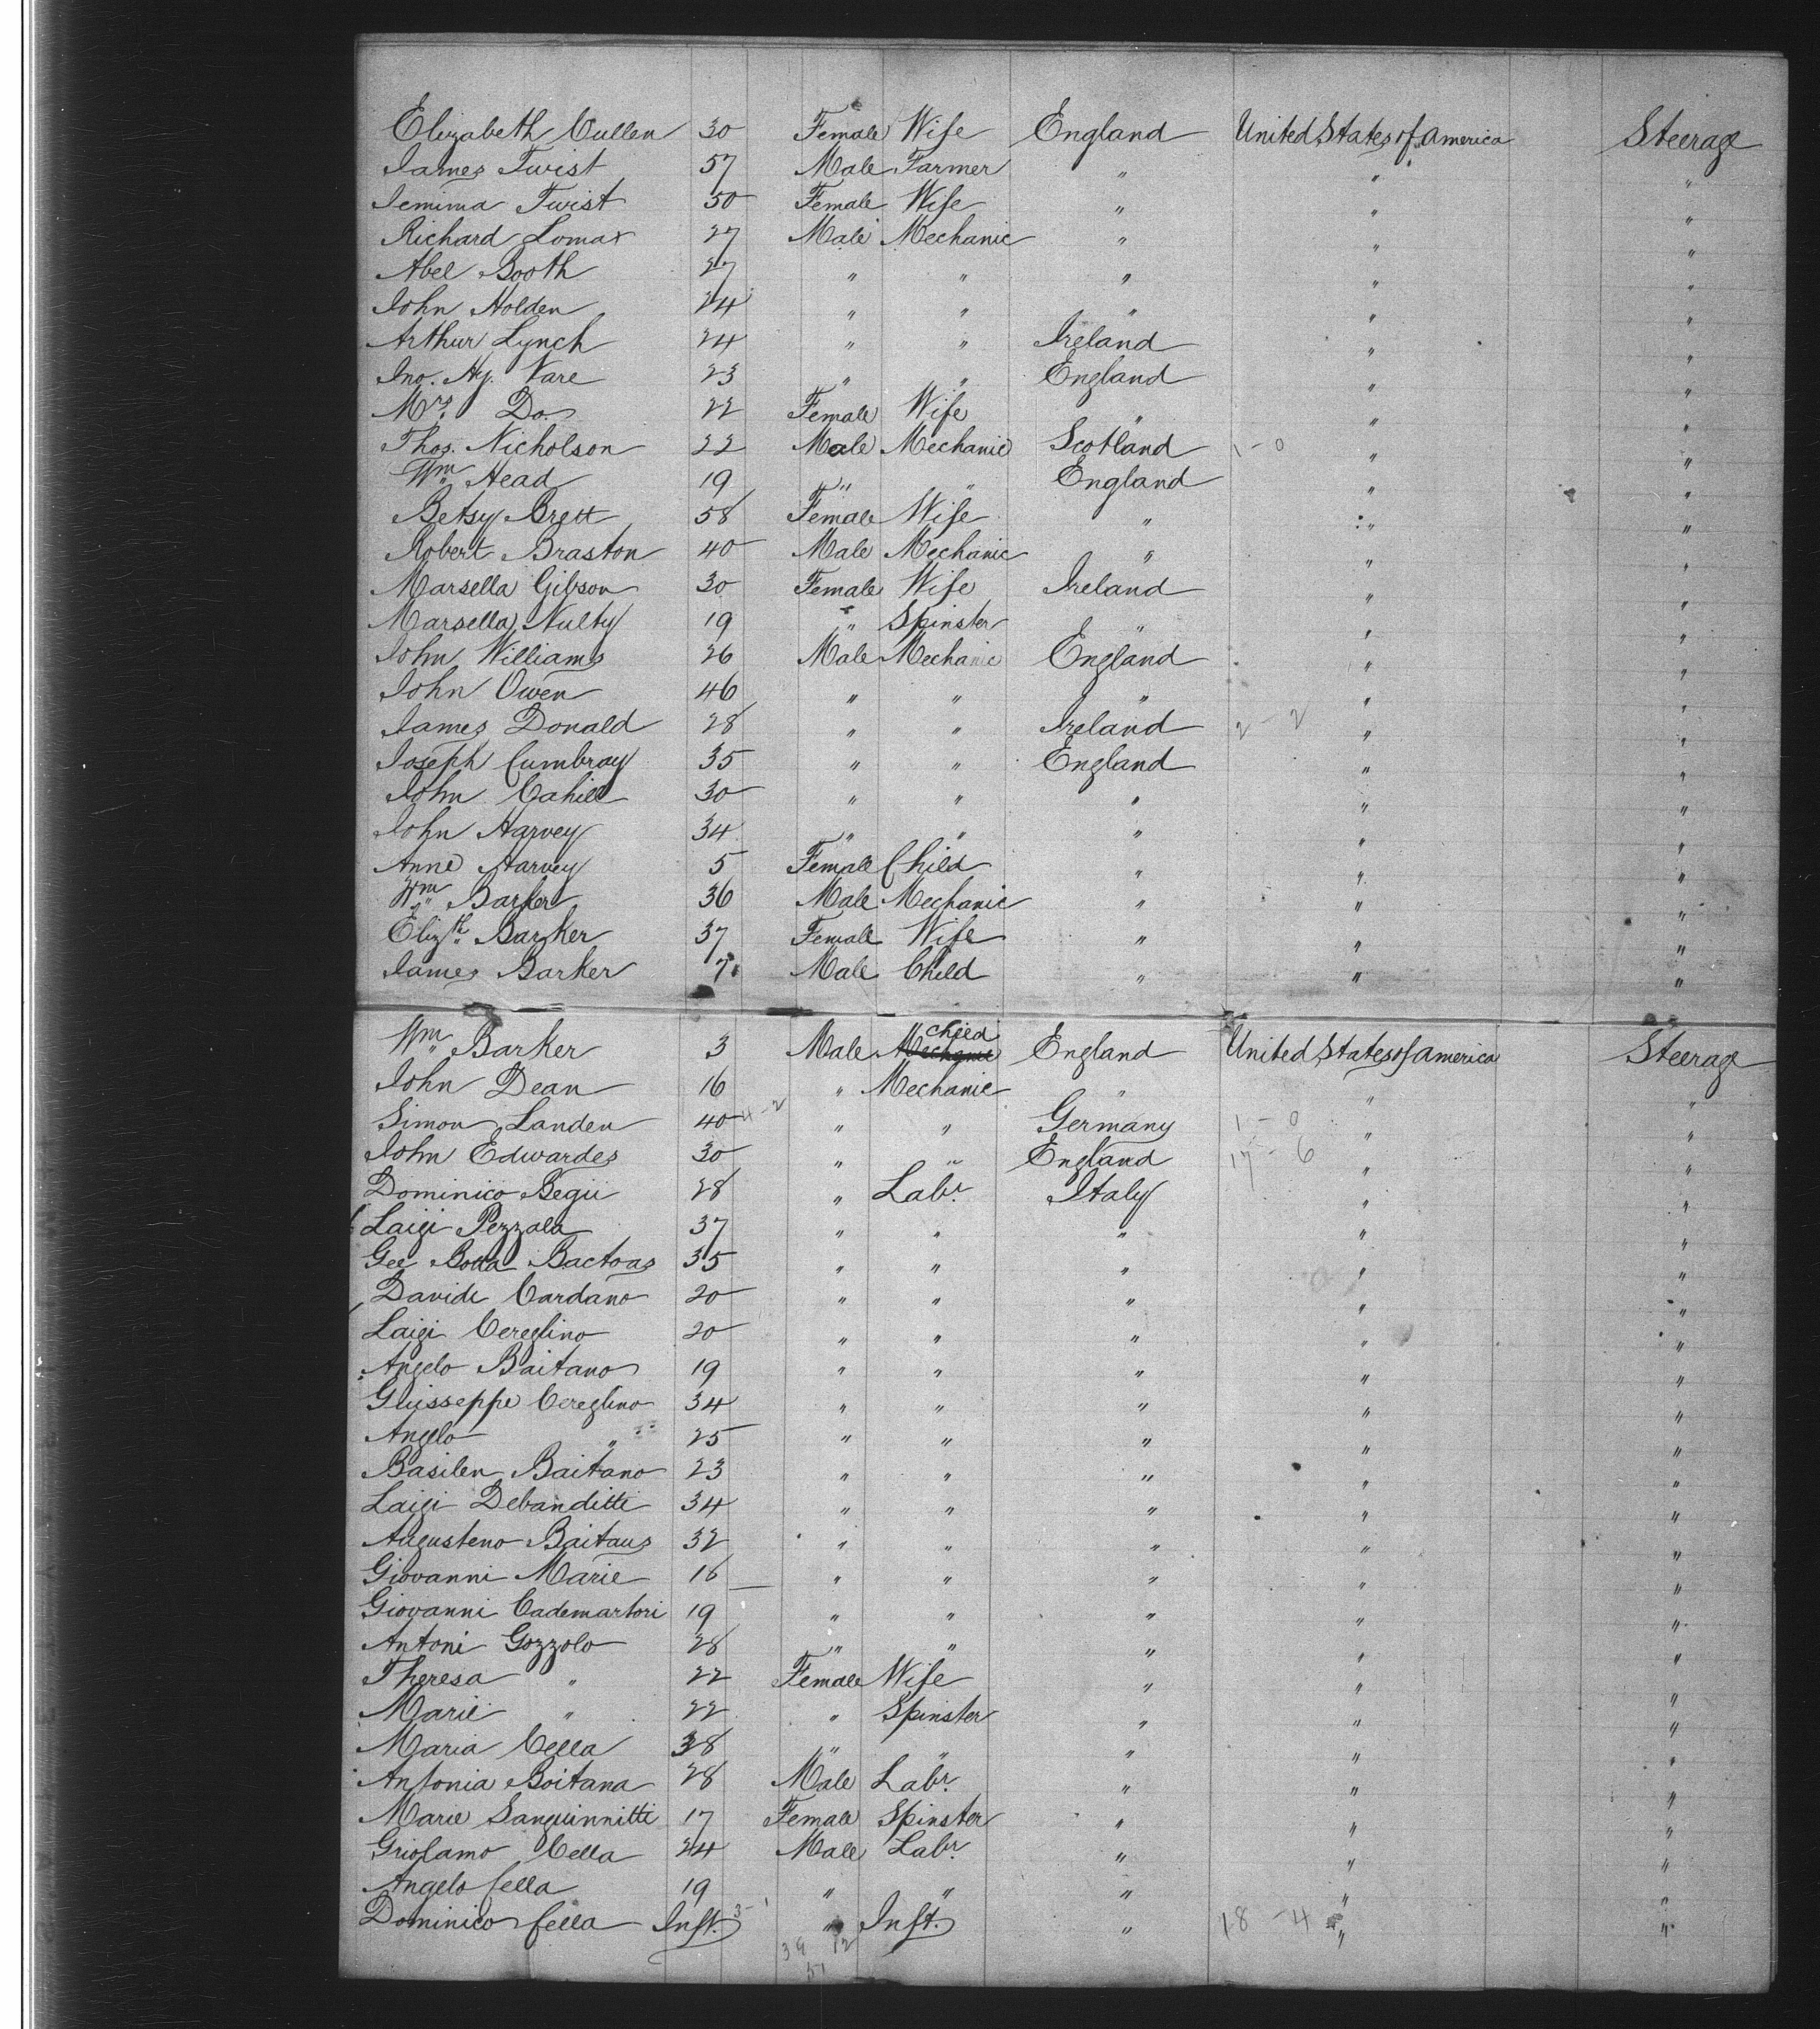 Elizabeth Cullen 30 Female Wife England United States of America Steerage
James Twist 57 Male Farmer " " "
Jemima Twist 50 Female Wife " " "
Richard Lomax 27 Male Mechanic " " "
Abel Booth 27 " " " " "
John Holden 24 " " " " "
Arthur Lynch 24 " " Ireland " "
Jno. Hy. Vare 23 " " England " "
Mrs. Do. 22 Female Wife " " "
Thos. Nicholson 22 Male Mechanic Scotland 1-0 " "
Wm Head 19 " " England " "
Betsy Brett 58 Female Wife " " "
Robert Braston 40 Male Mechanic " " "
Marsella Gibson 30 Female Wife Ireland " "
Marsella Nulty 19 " Spinster " " "
John Williams 26 Male Mechanic England " "
John Owen 46 " " " " "
James Donald 28 " " Ireland 2-2 " "
Joseph Cumbray 35 " " England " "
John Cahill 30 " " " " "
John Harvey 34 " " " " "
Anne Harvey 5 Female Child " " "
Wm Barker 36 Male Mechanic " " "
Elizth Barker 37 Female Wife " " "
James Barker 7 Male Child " " "
Wm Barker 3 Male Mechanic Child England United States of America Steerage
John Dean 16 " Mechanic " " "
Simon Landen 40 4-2 " " Germany 1-0 " "
John Edwardes 30 " " England 17-6 " "
Dominico Begii 28 " Labr. Italy " "
Laigi Pezzala 37 " " " " "
Gee Botta Bactoas 35 " " " " "
Davide Cardano 20 " " " " "
Laigi Cereglino 20 " " " " "
Angelo Baitano 19 " " " " "
Guisseppe Cereglino 34 " " " " "
Angelo " 25 " " " " "
Basilen Baitano 23 " " " " "
Laigi Debanditti 34 " " " " "
Augusteno Baitaus 32 " " " " "
Giovanni Marie 16 " " " " "
Giovanni Cademartori 19 " " " " "
Antoni Gozzolo 28 " " " " "
Theresa " 22 Female Wife " " "
Marie " 22 " Spinster " " "
Maria Cella 38 " " " " "
Antonia Boitana 28 Male Labr. " " "
Marie Sanguinnitti 17 Female Spinster " " "
Griolamo Cella 24 Male Labr. " " "
Angelo Cella 19 " " " " "
Dominico Cella Inft. 3-1 " Inft. " 18-4 " "
39 12
51